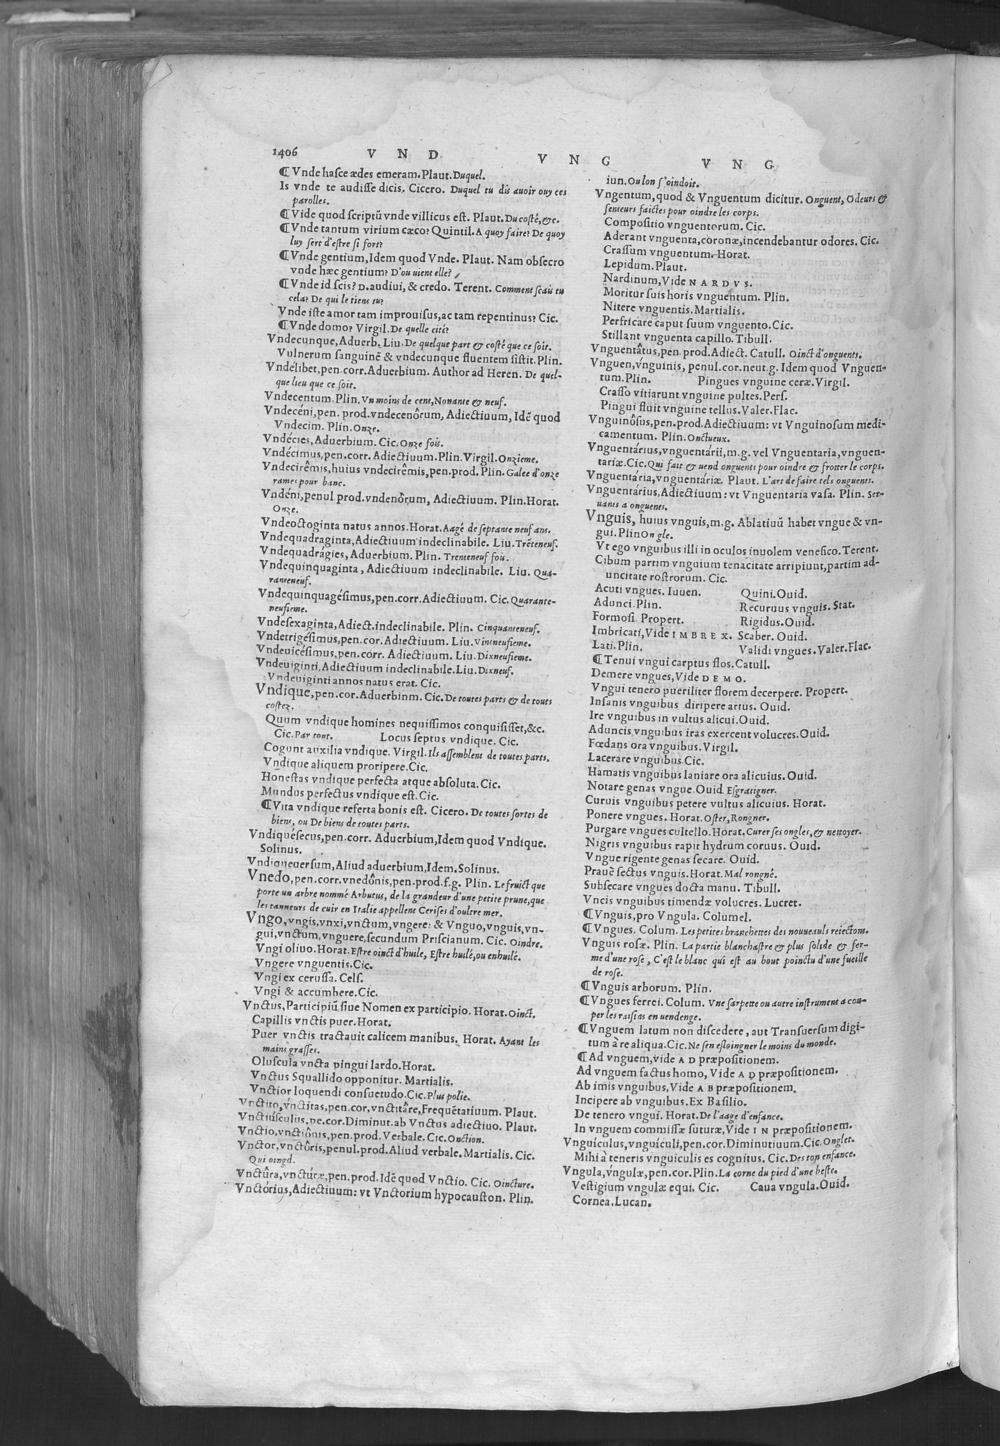 1406 V N D V N G V N G
¶ Vnde hasce ædes emeram. Plaut. Duquel.
Is vnde te audisse dicis, Cicero. Duquel tu dis auoir ouy ces
parolles.
¶ Vide quod scriptũ vnde villicus est. Plaut. Du costé, &c.
¶ Vnde tantum virium cæco? Quintil. A quoy faire? De quoy
luy sert d'estre si fort?
¶ Vnde gentium, Idem quod Vnde. Plaut. Nam obsecro
vnde hæc gentium? D'ou uient elle?
¶ Vnde id scis? D. audiui, & credo. Terent. Comment scais tu
cela? De qui le tiens tu?
Vnde iste amor tam improuisus, ac tam repentinus? Cic.
¶ Vnde domo? Virgil. De quelle cité?
Vndecunque, Aduerb. Liu. De quelque part & costé que ce soit.
Vulnerum sanguinẽ & vndecunque fluentem sistit. Plin.
Vndélibet, pen. corr. Aduerbium. Author ad Heren. De quel-
que lieu que ce soit.
Vndecentum. Plin. Vn moins de cent, Nonante & neuf.
Vndecéni, pen. prod. vndecenôrum, Adiectiuum, Idẽ quod
Vndecim. Plin. Onze.
Vndécies, Aduerbium. Cic. Onze fois.
Vndécimus, pen. corr. Adiectiuum. Plin. Virgil. Onzieme.
Vndecirêmis, huius vndecirêmis, pen. prod. Plin. Galee d'onze
rames pour banc.
Vndéni, penul prod. vndenôrum, Adiectiuum. Plin. Horat.
Onze.
Vndeoctoginta natus annos. Horat. Aagé de septante neuf ans.
Vndequadraginta, Adiectiuum indeclinabile. Liu. Trẽteneuf.
Vndequadrágies, Aduerbium. Plin. Trenteneuf fois.
Vndequinquaginta, Adiectiuum indeclinabile. Liu. Qua-
ranteneuf.
Vndequinquagésimus, pen. corr. Adiectiuum. Cic. Quarante-
neufieme.
Vndesexaginta, Adiect. indeclinabile. Plin. Cinquanteneuf.
Vndetrigésimus, pen. cor. Adiectiuum. Liu. Vintneufieme.
Vndeuicésimus, pen. corr. Adiectiuum. Liu. Dixneufieme.
Vndeuiginti, Adiectiuum indeclinabile. Liu. Dixneuf.
Vndeuiginti annos natus erat. Cic.
Vndique, pen. cor. Aduerbinm. Cic. De toutes parts & de touts
costez.
Quum vndique homines nequissimos conquisisset, &c.
Cic. Par tout. Locus septus vndique. Cic.
Cogunt auxilia vndique. Virgil. Ils assemblent de toutes parts.
Vndique aliquem proripere. Cic.
Honestas vndique perfecta atque absoluta. Cic.
Mundus perfectus vndique est. Cic.
¶ Vita vndique referta bonis est. Cicero. De toutes sortes de
biens, ou De biens de toutes parts.
Vndiquésecus, pen. corr. Aduerbium, Idem quod Vndique.
Solinus.
Vndiqueuersum, Aliud aduerbium, Idem. Solinus.
Vnedo, pen. corr. vnedônis, pen. prod. f. g. Plin. Le fruict que
porte un arbre nommé Arbutus, de la grandeur d'une petite prune, que
les tanneurs de cuir en Italie appellent Cerises d'oultre mer.
Vngo, vngis, vnxi, vnctum, vngere: & Vnguo, vnguis, vn-
gui, vnctum, vnguere, secundum Priscianum. Cic. Oindre.
Vngi oliuo. Horat. Estre oinct d'huile, Estre huilé, ou enhuilé.
Vngere vnguentis. Cic.
Vngi ex cerussa. Cels.
Vngi & accumbere. Cic.
Vnctus, Participiũ siue Nomen ex participio. Horat. Oinct.
Capillis vnctis puer. Horat.
Puer vnctis tractauit calicem manibus. Horat. Ayant les
mains grasses.
Oluscula vncta pingui lardo. Horat.
Vnctus Squallido opponitur. Martialis.
Vnctior loquendi consuetudo. Cic. Plus polie.
Vnctito, vnctitas, pen. cor, vnctitâre, Frequẽtatiuum. Plaut.
Vnctiúsculus, pe. cor. Diminut. ab Vnctus adiectiuo. Plaut.
Vnctio, vnctiônis, pen. prod. Verbale. Cic. Onction.
Vnctor, vnctôris, penul. prod. Aliud verbale. Martialis. Cic.
Qui oingd.
Vnctûra, vnctúræ, pen. prod. Idẽ quod Vnctio. Cic. Oincture.
Vnctórius, Adiectiuum: vt Vnctorium hypocauston. Plin.
iun. Ou lon s'oindoit.
Vngentum, quod & Vnguentum dicitur. Onguent, Odeurs &
senteurs faictes pour oindre les corps.
Compositio vnguentorum. Cic.
Aderant vnguenta, coronæ, incendebantur odores. Cic.
Crassum vnguentum. Horat.
Lepidum. Plaut.
Nardinum, Vide N A R D V S.
Moritur suis horis vnguentum. Plin.
Nitere vnguentis. Martialis.
Perfricare caput suum vnguento. Cic.
Stillant vnguenta capillo. Tibull.
Vnguentâtus, pen. prod. Adiect. Catull. Oinct d'onguents.
Vnguen, vnguinis, penul. cor. neut. g. Idem quod Vnguen-
tum. Plin. Pingues vnguine ceræ. Virgil.
Crasso vitiarunt vnguine pultes. Pers.
Pingui fluit vnguine tellus. Valer. Flac.
Vnguinôsus, pen. prod. Adiectiuum: vt Vnguinosum medi-
camentum. Plin. Onctueux.
Vnguentárius, vnguentárii, m. g. vel Vnguentaria, vnguen-
tariæ. Cic. Qui fait & uend onguents pour oindre & frotter le corps.
Vnguentária, vnguentáriæ. Plaut. L'art de faire tels onguents.
Vnguentárius, Adiectiuum: vt Vnguentaria vasa. Plin. Ser-
uants a onguents.
Vnguis, huius vnguis, m. g. Ablatiuũ habet vngue & vn-
gui. Plin Ongle.
Vt ego vnguibus illi in oculos inuolem venefico. Terent.
Cibum partim vnguium tenacitate arripiunt, partim ad-
uncitate rostrorum. Cic.
Acuti vngues. Iuuen. Quini. Ouid.
Adunci. Plin. Recuruus vnguis. Stat.
Formosi Propert. Rigidus. Ouid.
Imbricati, Vide I M B R E X. Scaber. Ouid.
Lati. Plin. Validi vngues. Valer. Flac.
¶ Tenui vngui carptus flos. Catull.
Demere vngues, Vide D E M O.
Vngui tenero pueriliter florem decerpere. Propert.
Insanis vnguibus diripere artus. Ouid.
Ire vnguibus in vultus alicui. Ouid.
Aduncis vnguibus iras exercent volucres. Ouid.
Fœdans ora vnguibus. Virgil.
Lacerare vnguibus. Cic.
Hamatis vnguibus laniare ora alicuius. Ouid.
Notare genas vngue. Ouid Esgratigner.
Curuis vnguibus petere vultus alicuius. Horat.
Ponere vngues. Horat. Oster, Rongner.
Purgare vngues cultello. Horat. Curer ses ongles, & nettoyer.
Nigris vnguibus rapit hydrum coruus. Ouid.
Vngue rigente genas secare. Ouid.
Prauè sectus vnguis. Horat. Mal rongné.
Subsecare vngues docta manu. Tibull.
Vncis vnguibus timendæ volucres. Lucret.
¶ Vnguis, pro Vngula. Columel.
¶ Vngues. Colum. Les petites branchettes des nouueauls reiectons.
Vnguis rosæ. Plin. La partie blanchastre & plus solide & fer-
me d'une rose, C'est le blanc qui est au bout poinctu d'une fueille
de rose.
¶ Vnguis arborum. Plin.
¶ Vngues ferrei. Colum. Vne sarpette ou autre instrument a cou-
per les raisins en uendenge.
¶ Vnguem latum non discedere, aut Transuersum digi-
tum à re aliqua. Cic. Ne s'en esloingner le moins du monde.
¶ Ad vnguem, vide A D præpositionem.
Ad vnguem factus homo, Vide A D præpositionem.
Ab imis vnguibus, Vide A B præpositionem.
Incipere ab vnguibus. Ex Basilio.
De tenero vngui. Horat. De l'aage d'enfance.
In vnguem commissæ suturæ, Vide I N præpositionem.
Vnguículus, vnguículi, pen. cor. Diminutiuum. Cic. Onglet.
Mihi à teneris vnguiculis es cognitus. Cic. Des ton enfance.
Vngula, vngulæ, pen. cor. Plin. La corne du pied d'une beste.
Vestigium vngulæ equi. Cic. Caua vngula. Ouid.
Cornea. Lucan.